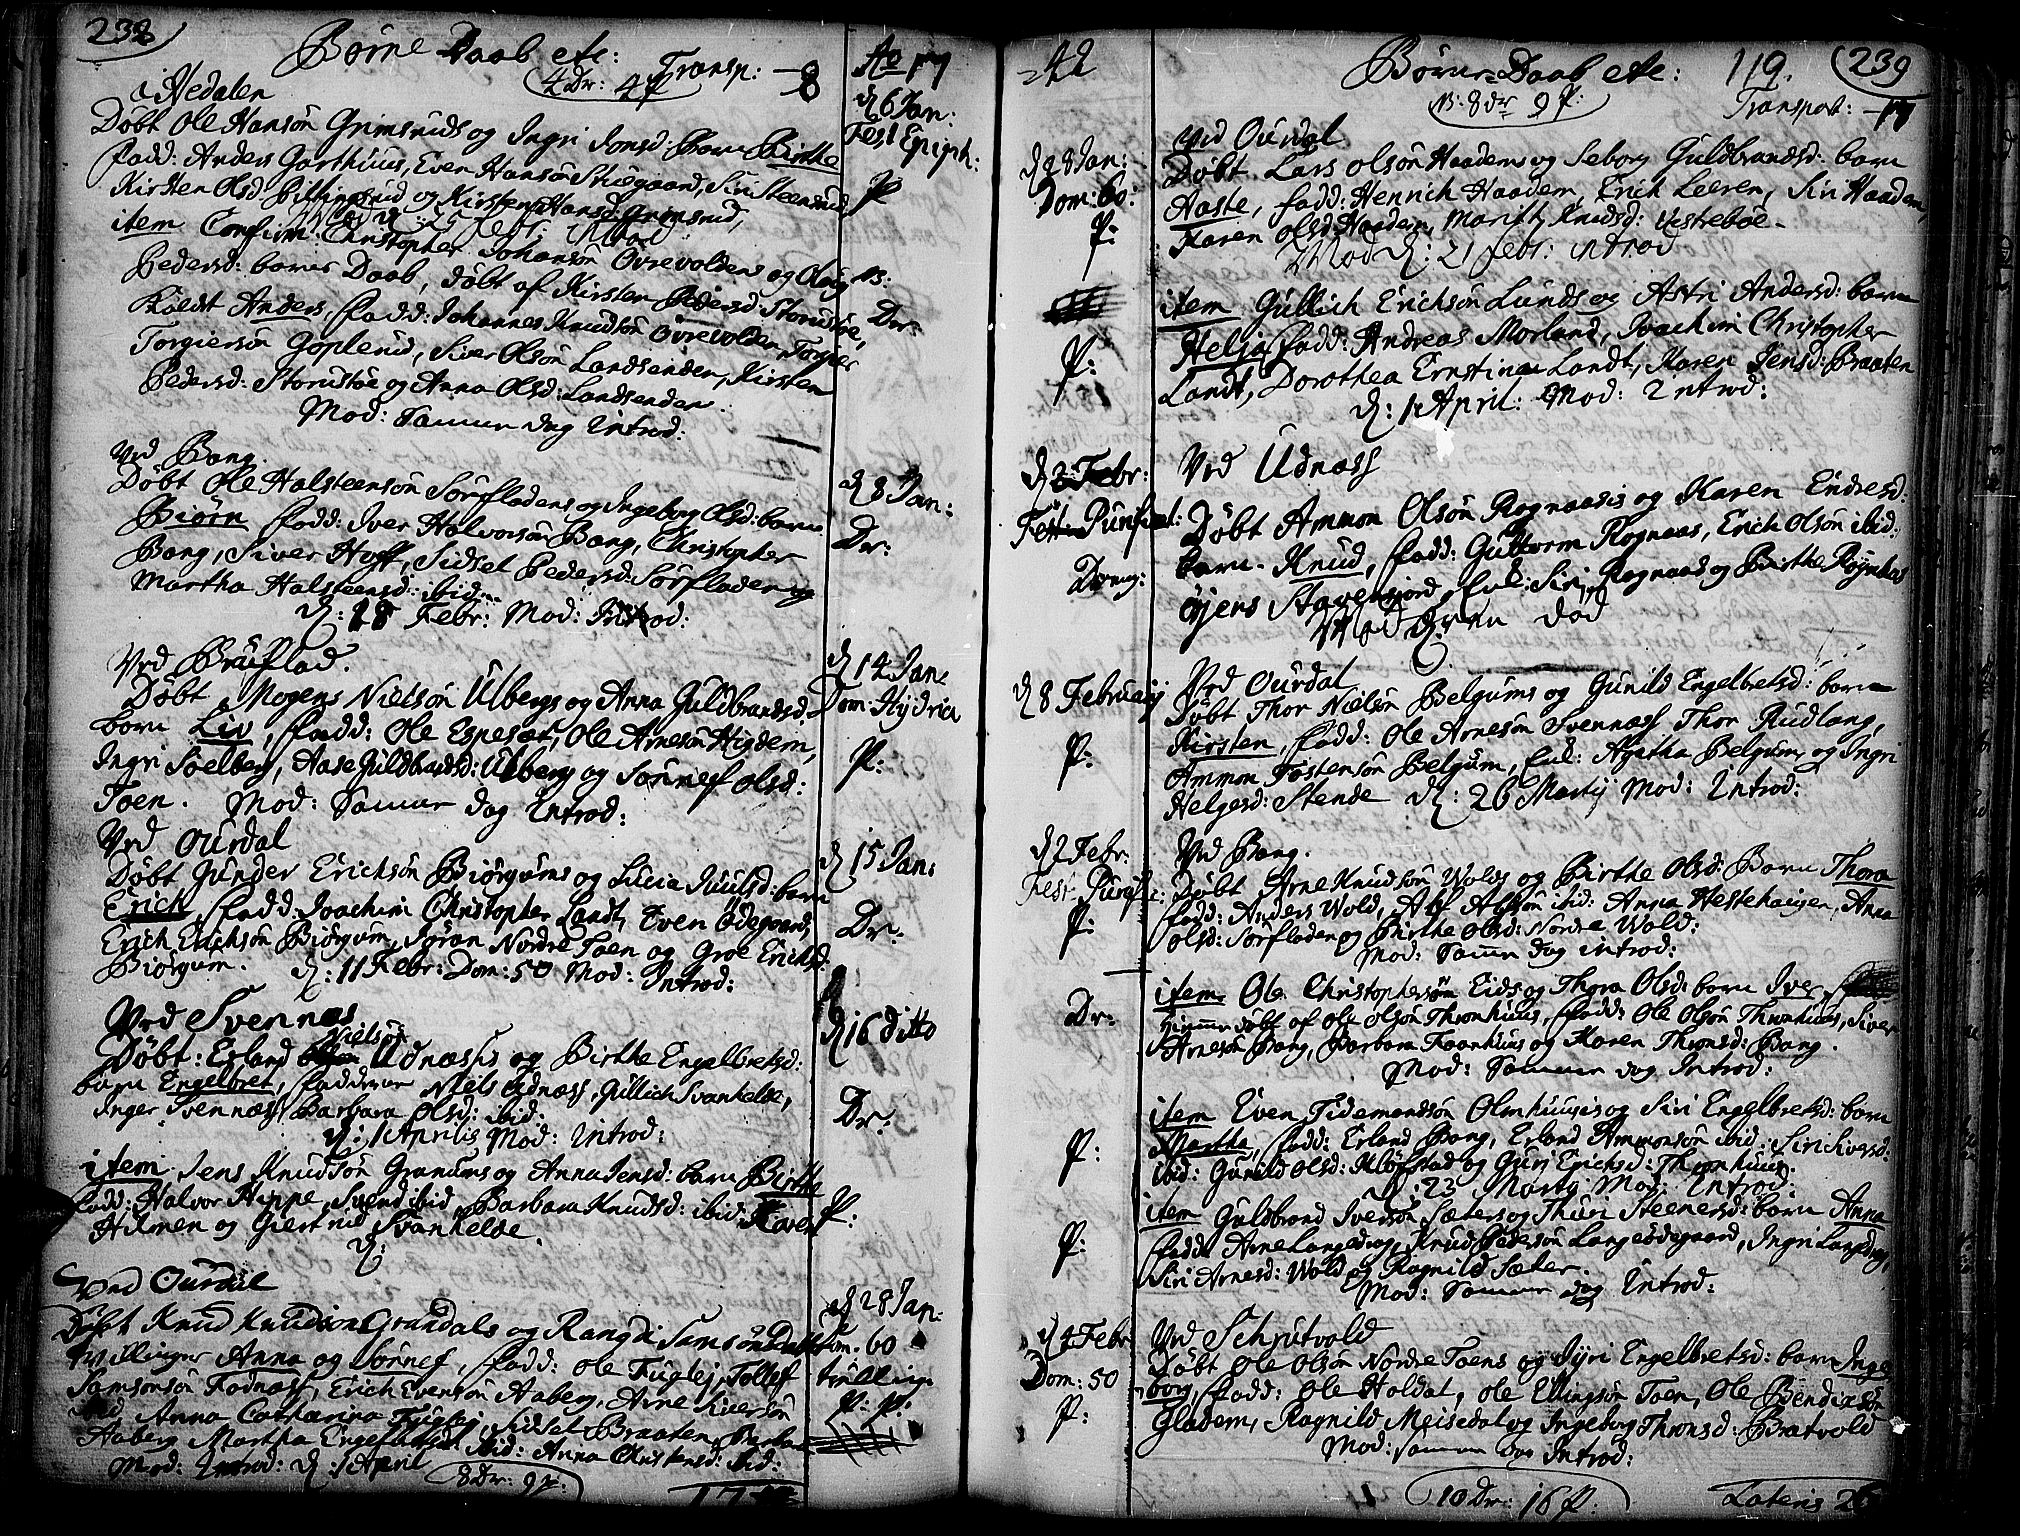 238
Børne Daab etc: Transp: 8
4 Dr: 4 P
Ao 17
i Hedalen
d 6 Jan:
Fest Epiph:
P
Døbt Ole Hansøn Grimsruds og Ingri Jonsd: Barn Birthe
fadd: Anders Garthuus, Even Hansøn Stiegaard, Siri Steensrud,
Kirsten Olsd: og Kirsten Hansd: Grimsrud,
item Confirm: Christopher Johansøn Øvrevolden og Oluf
Pedersd: barns Daab, døbt af Kirsten Pedersd: Storustøe,
Kaldt Anders, fadd: Johannes Knudsøn Øvrevolden, Torger
Torgiersøn Goplerud, Siver Olsøn Landsenden, Kirsten
Pedersd: Storustøe og Anna Olsd: Landsenden.
Mod: Samme dag Introd:
Dr:
Ved Bang.
d 8 Jan:
Dr:
Døbt Ole Halsteensøn Sørfladens og Ingeborg Olsd: barn
Biørn fadd: Iver Halvorsøn Bang, Christopher
Bang, Siver Hoff, Sidsel Pedersd: Sørfladen og
Martha Halsteensd: ibid:
d: 18 Febr: Mod: Introd:
Ved Bruflad.
d 14 Jan:
Dom: Hydria
P:
Døbt Mogens Nielsøn Ulbergs og Anna Guldbrandsd:
barn Liv, fadd: Ole Espeset, Ole Arnesøn Høgdem,
Ingri Soelberg, Aase Guldbrandsd: Ulberg og Sønnef Olsd:
Toen. Mod: Samme dag Introd:
Ved Ourdal
d 15 Jan:
Dr:
Døbt Gunder Erichsøn Biørgums og Lucia Juulsd: barn
Erich, fadd: Joachim Christopher Landt, Even Ødegaard,
Erich Erichsøn Biørgum, Søran Nordre Toen og Groe Erichsd:
Biørgum. d: 11 Febr: Dom: 50 Mod: Introd:
Ved Svennes
d 16 ditto
Dr:
Nielsøn
Døbt: Erland Udnæss og Birthe Engelbretsd:
barn Engelbret, fadderne Niels Udnæss, Gullich Svankelse,
Inger Svennæss, Barbara Olsd: ibid:
d: 1 Aprilis Mod: Introd:
item Jens Knudsøn Granums og Anna Jensd: barn Birthe
fadd: Halvor Hippe, Svend ibid, Barbara Knudsd: ibid: Karen
Hilmen og Giertrud Svankelse.
d:
P:
Ved Ourdal
d 28 Jan:
Dom. 60
trilling:
P: P:
Døbt Knud Knudsøn Grandals og Rangdi Samsønsdatter
Tvillinger Anna og Sønnef, fadd: Ole Fuglej, Tollef
Samsonsøn Fodnæss, Erich Evensøn Aaberg, Arne Siversøn
ibid Anna Catharina Fuglej, Sidsel Braaten,
Aaberg Martha Engelbretsd: ibid: Anna Christensd: ibid:
Mod: Introd: d: 1 April
8 Dr: 9 P:
42
Børne-Daab etc: 119. 239
N: 8 dr 9 P: Transport: 17
Ved Ourdal
d 28 Jan:
Dom: 60:
P:
Døbt Lars Olsøn Haadems og Seborg Guldbrandsd: barn
Aaste, fadd: Henrich Haadem, Erich Leeren, Siri Haadem,
Karen Olsd: Haadem, Maritt Knudsd: Vesteboe.
Mod d: 21 Febr: introd
item Gullich Erichsøn Lunds og Astri Andersd: barn
Helja, fadd: Andreas Morland, Joachim Christopher
Landt, Dorothea Ernstina Landt, Karen Jensd: Braaten
d: 1 April: Mod: Introd:
P:
Ved Udnæss
d 2 Febr:
Fest: Purificat:
Døbt Ammon Olsøn Rognaasis og Karen Endresd:
barn Knud, fadd: Guttorm Rognaas, Erich Olsøn ibid:
Øjers Stavensiord, Siri Rognaas og Birthe
Moderen død
Ved Ourdal
d 8 February
P:
Døbt Thor Nielsøn Belgums og Gunild Engelbretsd: barn
Kirsten, fadd: Ole Arnesøn Svennæss Thor Rudlang,
Ammon Tostensøn Belgum, Agatha Belgum og Ingri
Helgesd: Stende d: 26 Martij Mod: Introd:
Ved Bang.
d 2 Febr:
Fest: Purif:
P:
Døbt Arne Knudsøn Wolds og Birthe Olsd: Barn Thora
fadd: Anders Wold, Alf Alfsøn ibid: Anna Hestehaugen, Anna
Olsd: Sørfladen og Birthe Olsd: Nordre Wold:
Mod: Samme dag introd:
item Ole Christophersøn Eids og Thora Olsd: barn Iver,
hiemme døbt af Ole Olsøn Thronhuus, fadd: Ole Olsøn Thronhuus, Siver
Arnesøn Bang, Barbara Taanhuus og Karen Thronsd: Bang.
Mod: Samme dag Introd:
Dr:
item Even Tidemandsøn Olmhuusis og Siri Engelbretsd: barn
Martha, fadd: Erland Bang, Erland Ammonsøn ibid: Siri Siversd:
ibid: Gunild Olsd: Kløfstad og Guri Erichsd: Thronhuus.
d: 23 Martij Mod: Introd:
P:
item Guldbrand Iversøn Sæters og Thuri Steenersd: barn Anna
fadd: Arne Langedrag, Knud Pedersøn Langeødegaard, Ingri Langedrag,
Siri Arnesd: Wold og Ragnild Sæter.
Mod: Samme dag Introd:
P:
Ved Schrutvold
d 4 Febr
Dom: 50
P:
Døbt Ole Olsøn Nordre Toens og Jyri Engelbretsd: barn Inge
borg, fadd: Ole Holdal, Ole Ellingsøn Toen, Ole Bendixsøn
Gladem, Ragnild Meisedal og Ingeborg Thronsd: Bratvold
Mod: Samme dag Introd:
10 Dr: 16 P: Lateris 26